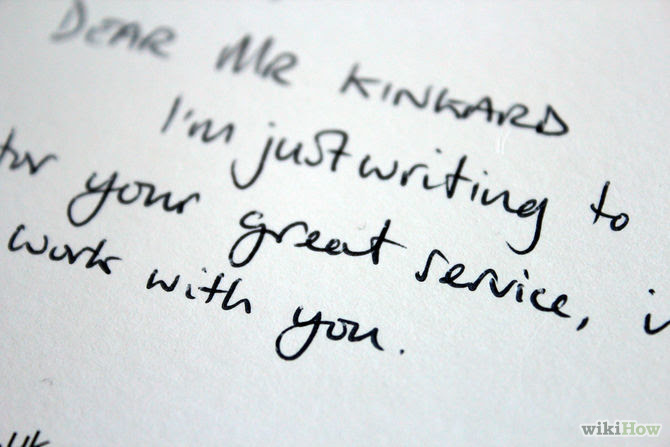 DEAR MR KINKARD
I'm just writing to
for your great service,
work with you.
wikiHow